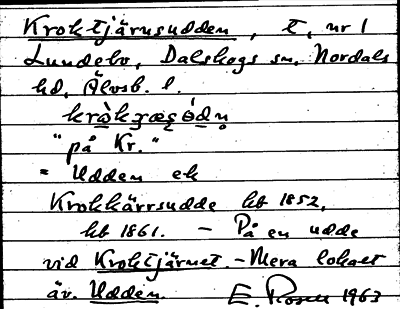 Kroktjärnsudden, t. nr 1
Lundebo, Dalskogs sn, Nordals
hd, Älvsb. l.
"på Kr."
= Udden ek
Krokkärrsudde hb 1852,
hb 1861. - På en udde
vid Kroktjärnet. - Mera lokalt
äv. Udden. E. Rosén 1963